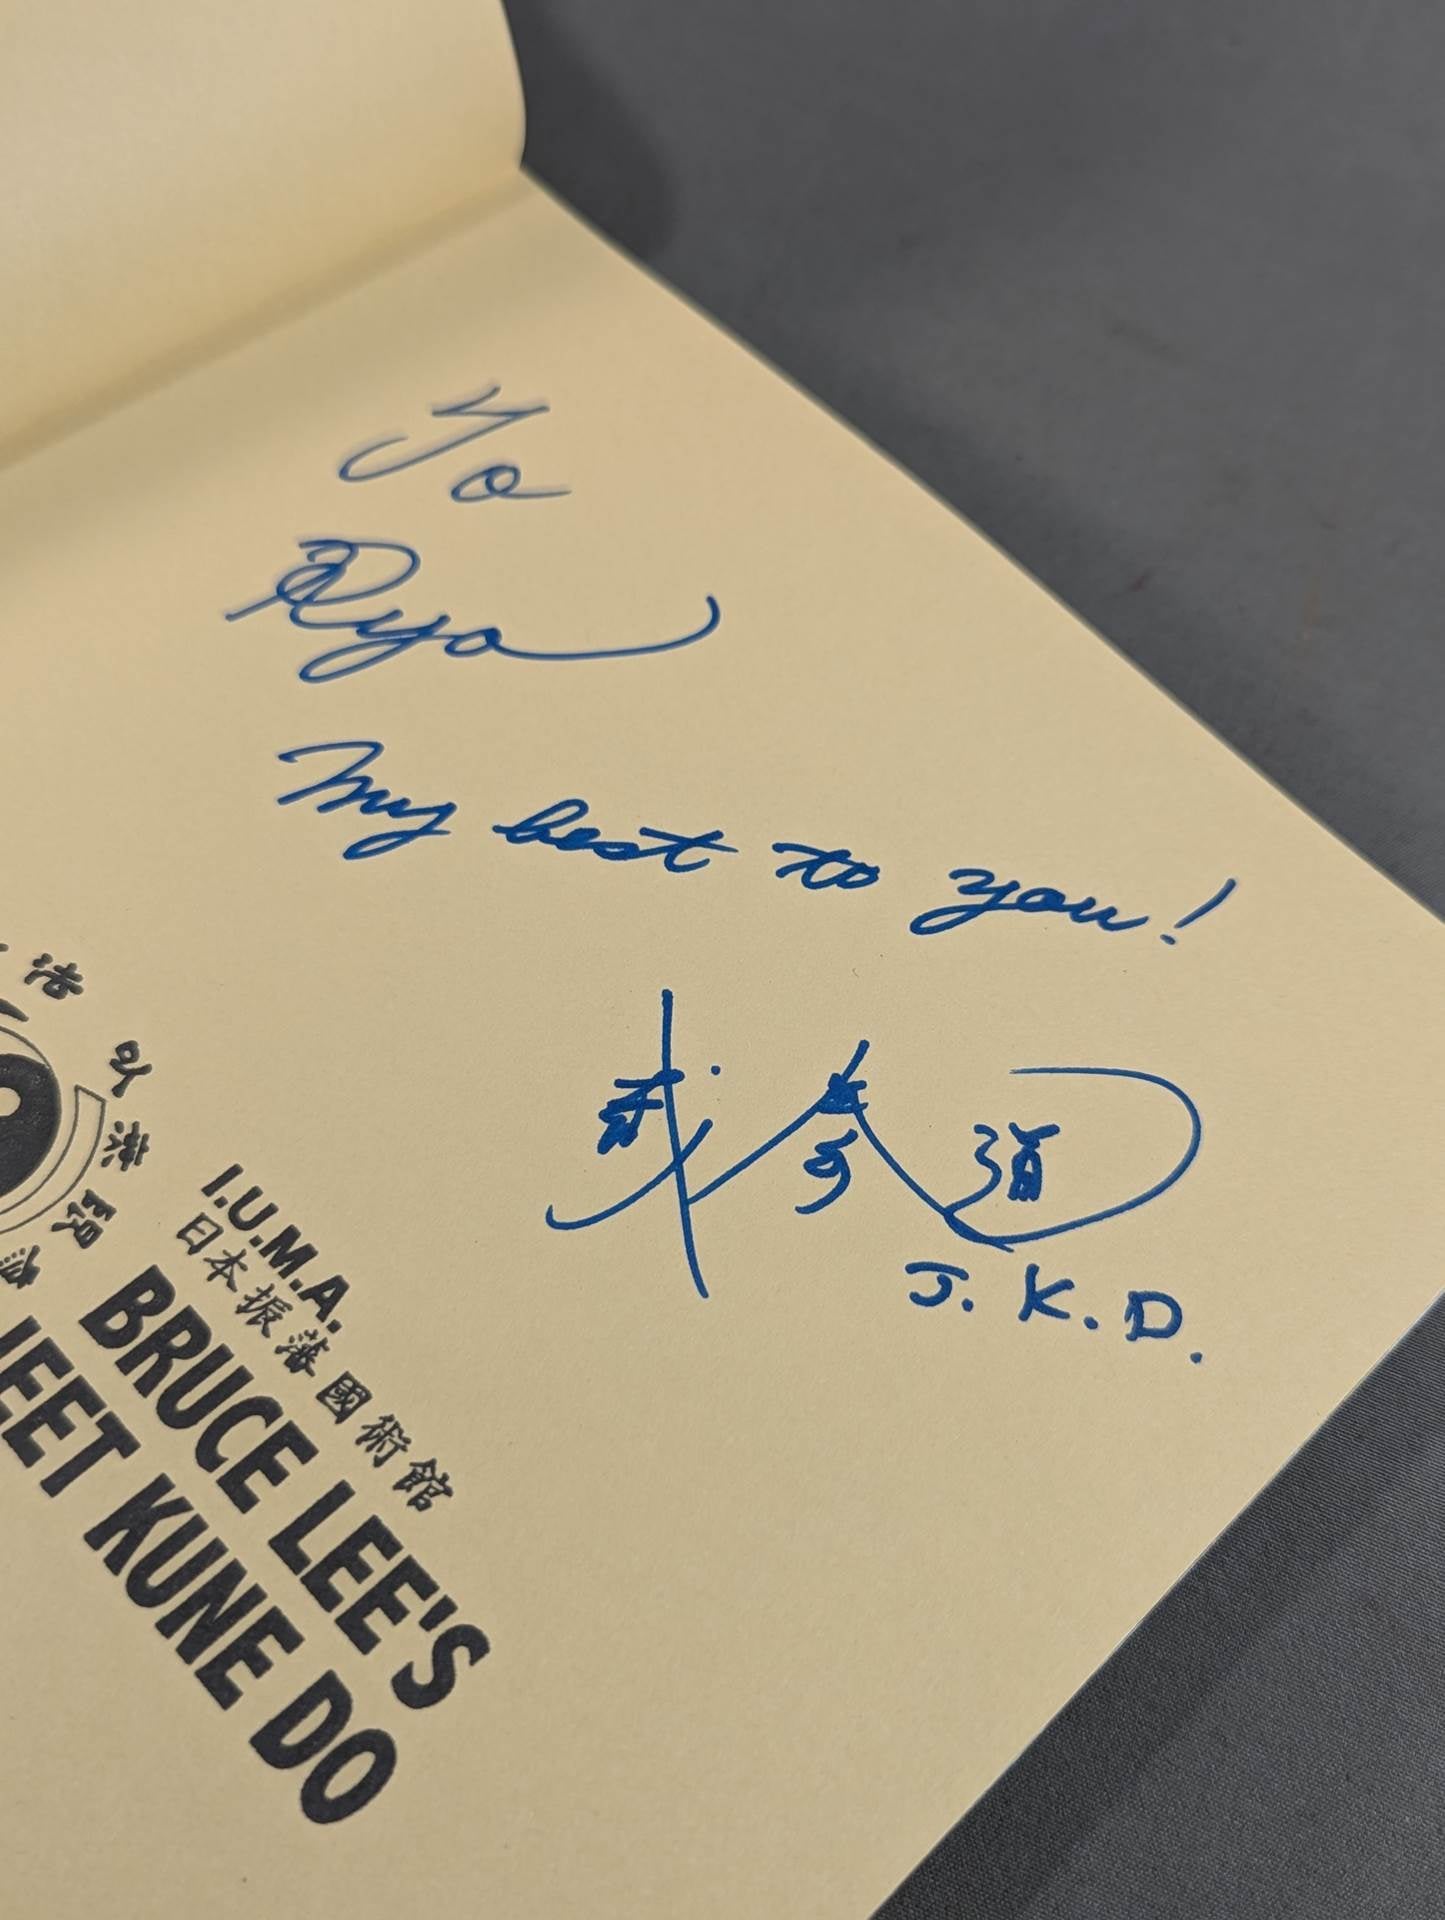 Yo
Ryo
My best to you!
截拳道
J.K.D.
I.U.M.A.
日本振藩國術館
BRUCE LEE'S
JEET KUNE DO